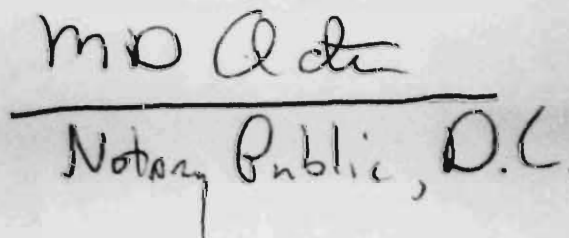 MD
Notary Public, D.C.